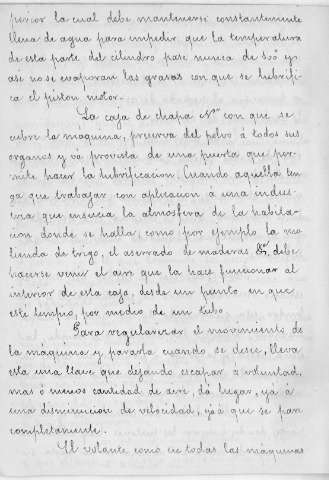 perior la cual debe mantenerse constantemente
llena de agua para impedir que la temperatura
de esta parte del cilindro pase nunca de 300° y
ase no se evaporan las grasas con que se lubrifi
ca el piston motor.
La caja de chapa N" con que se
cubre la máquina, preserva del polvo á todos sus
organos y va provista de una puerta que per-
mite hacer la lubrificacion. Cuando aquella ten
ga que trabajar con aplicacion á una indus-
tria que ensucia la atmósfera de la habita-
cion donde se halla, como por ejemplo la mo
lienda de trigo, el aserrado de maderas &ª, debe
hacerse venir el aire que la hace funcionar al
interior de esta caja, desde un punto en que
este limpio, por medio de un tubo.
Para regularizar el movimiento de
la máquina y pararla cuando se desee, lleva
esta una llave que dejando escapar á voluntad,
mas ó menos cantidad de aire, dá lugar, yá á
una disminucion de velocidad, yá á que se pare
completamente.
El volante como en todas las máquinas